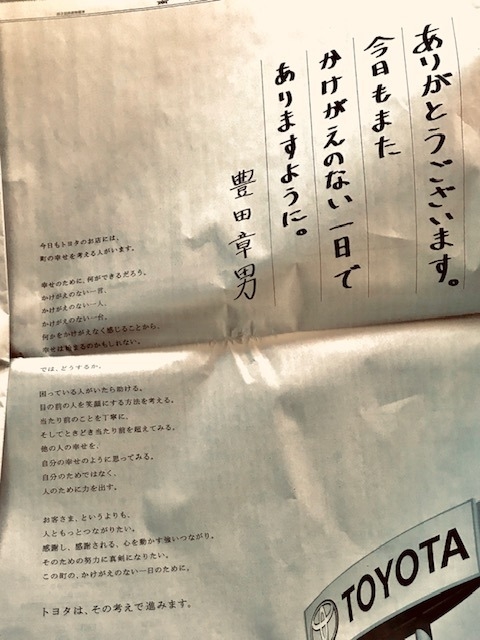 ありがとうございます。
今日もまた
かけがえのない一日で
ありますように。
豊田章男
今日もトヨタのお店には、
町の幸せを考える人がいます。
幸せのために、何ができるだろう。
かけがえのない一言、
かけがえのない一人、
かけがえのない一台。
何かをかけがえなく感じることから、
幸せは始まるのかもしれない。
では、どうするか。
困っている人がいたら助ける。
目の前の人を笑顔にする方法を考える。
当たり前のことを丁寧に、
そしてときどき当たり前を超えてみる。
他の人の幸せを、
自分の幸せのように思ってみる。
自分のためではなく、
人のために力を出す。
お客さま、というよりも、
人ともっとつながりたい。
感謝し、感謝される、心を動かす強いつながり。
そのための努力に真剣になりたい。
この町の、かけがえのない一日のために。
トヨタは、その考えで進みます。
TOYOTA